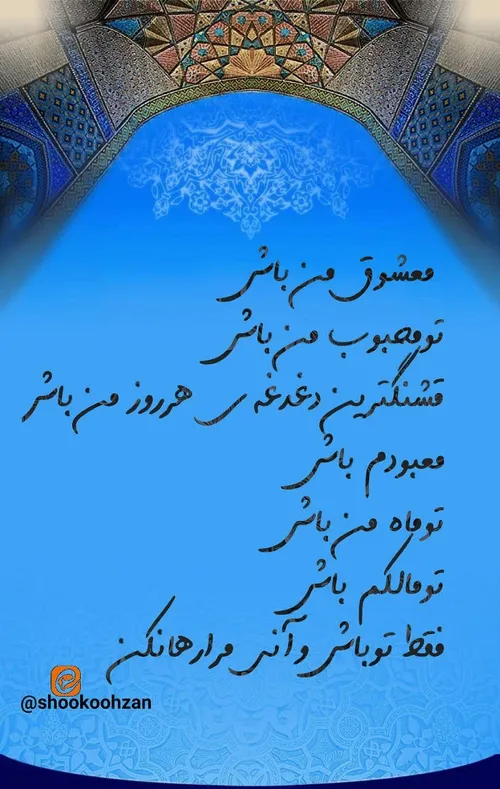 معشوق من باش
تو محبوب من باش
قشنگترین دغدغه ی هر روز من باش
معبودم باش
تو ماه من باش
تو مالکم باش
فقط تو باش و آنی مرا رها نکن
@shookoohzan